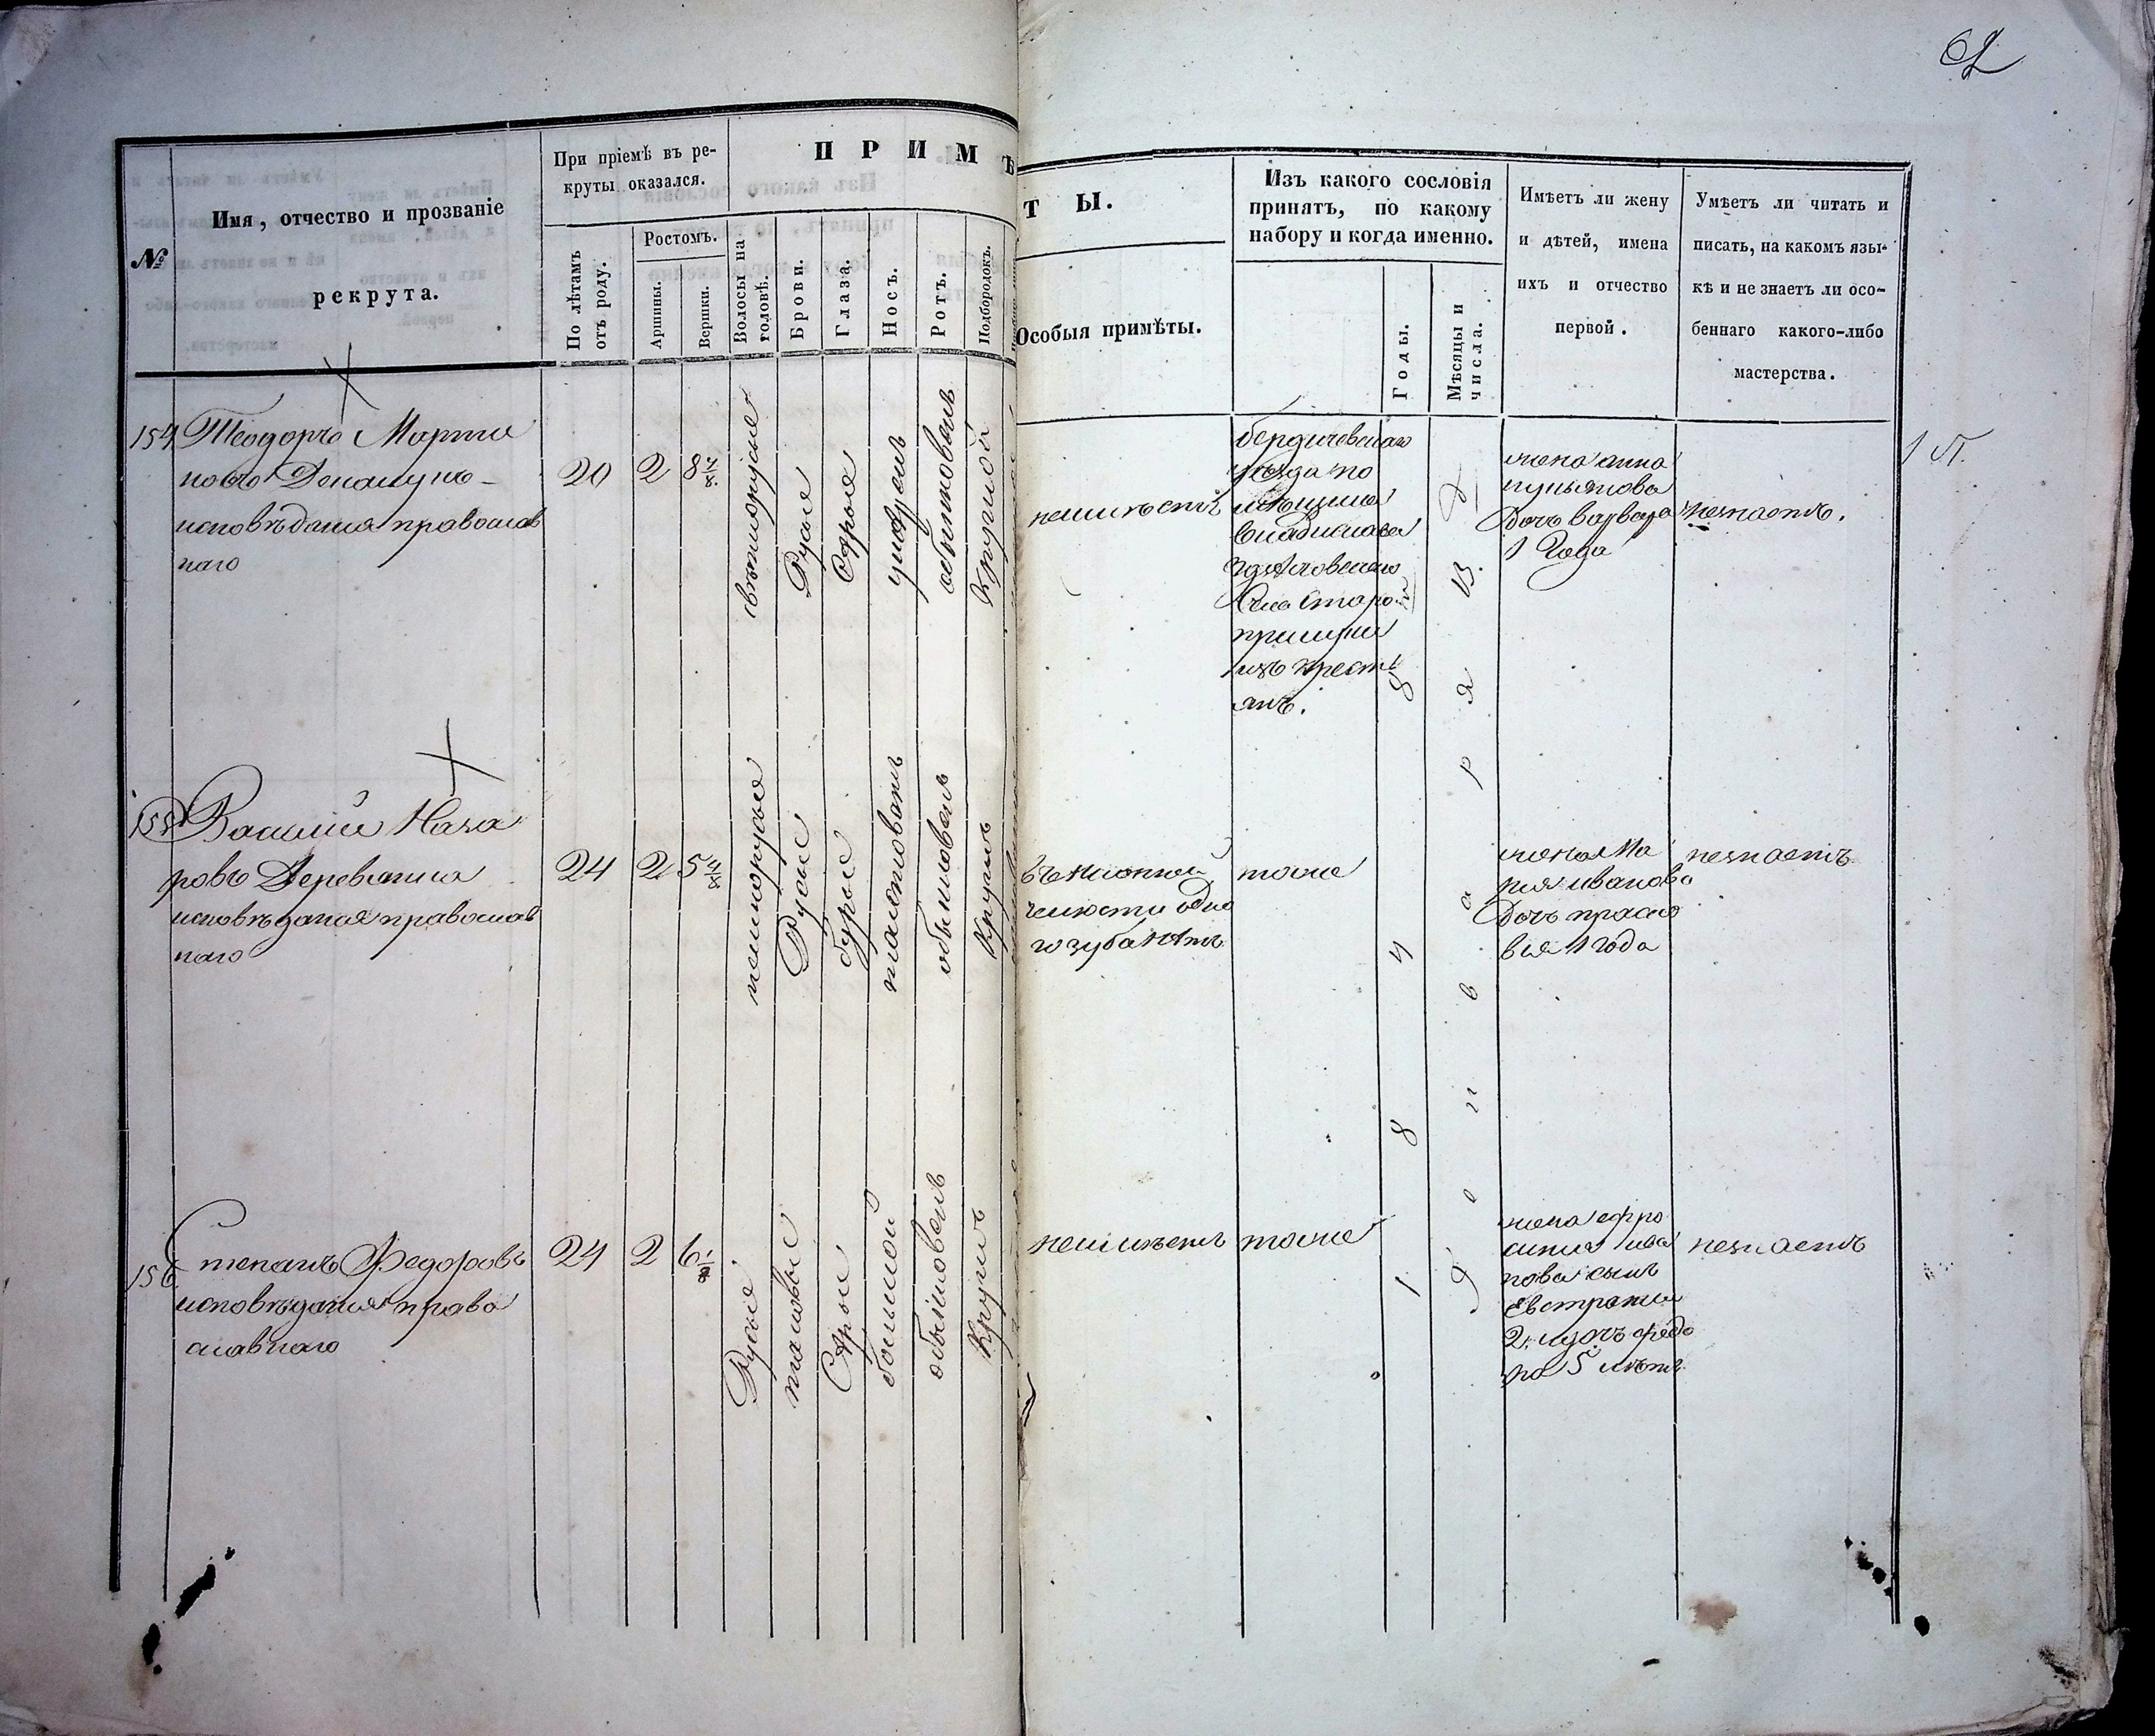 62
№
Имя, отчество и прозваніе
рекрута.
При пріемѣ въ ре-
круты оказался.
По лѣтамъ
отъ роду.
Ростомъ.
Аршины.
Вершки.
ПРИМѢ
Волосы на
головѣ.
Брови.
Глаза.
Носъ.
Ротъ.
Подбородокъ.
ТЫ.
Особыя примѣты.
Изъ какого сословія
принятъ, по какому
набору и когда именно.
Годы.
Мѣсяцы и
числа.
Имѣетъ ли жену
и дѣтей, имена
ихъ и отчество
первой.
Умѣетъ ли читать и
писать, на какомъ язы-
кѣ и не знаетъ ли осо-
беннаго какого-либо
мастерства.
154
Теодоръ Марти
новъ
исповѣданія православ
наго
20
2
8 4/8
свѣтлорусые
Русые
Сѣрые
умѣрен
обыкновенъ
Круглой
неимѣетъ
бердичевскаго
уѣзда по
мѣщика
владислава
села Старо
прилуки
изъ кресть
янъ.
жена анна
дочь варвара
1 Года
незнаетъ.
1 Л.
155
Василий Наза
ровъ Деревянка
исповѣданія православ
наго
24
2
5 4/8
темнорусые
Русые
бурые
обыкновенъ
Круглъ
челюсти одно
го зуба нѣтъ
тоже
жена Ма
рія иванова
дочь праско
вія 1 года
незнаетъ
156
Степанъ Федоровъ
исповѣданія право
славнаго
24
2
6 1/8
Русые
таковые
Сѣрые
большой
обыкновенъ
Круглъ
неимѣетъ
тоже
1 8 4 8
Января
жена ефро
синія ива
нова сынъ
Евстратий
2. и дочь федо
ра 5 лѣтъ
незнаетъ